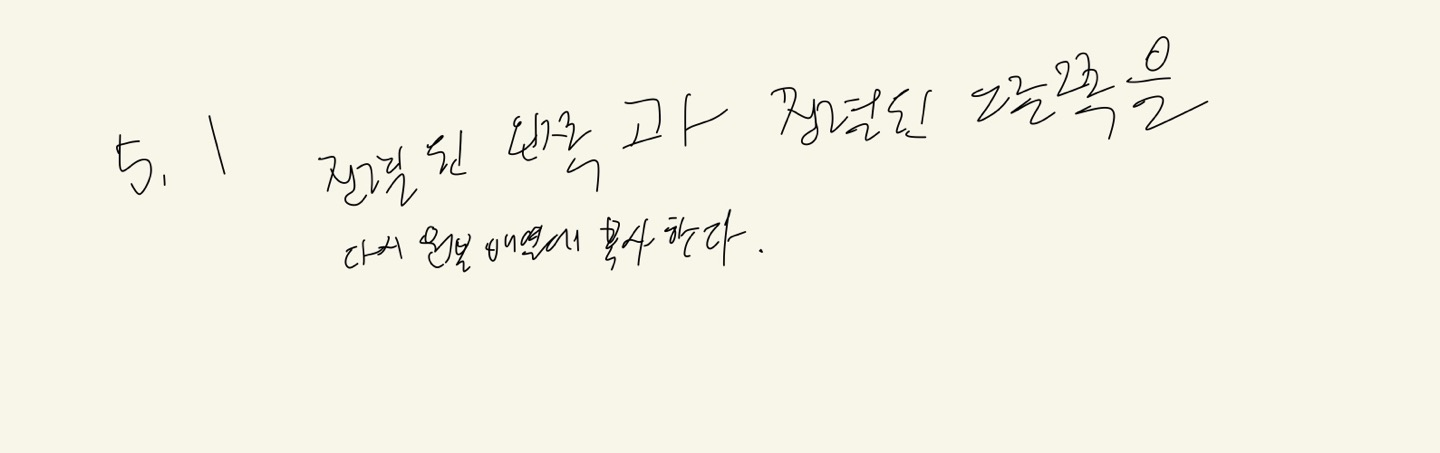 5. 1 정렬된 왼쪽과 정렬된 오른쪽을
다시 원본 배열에 복사한다.